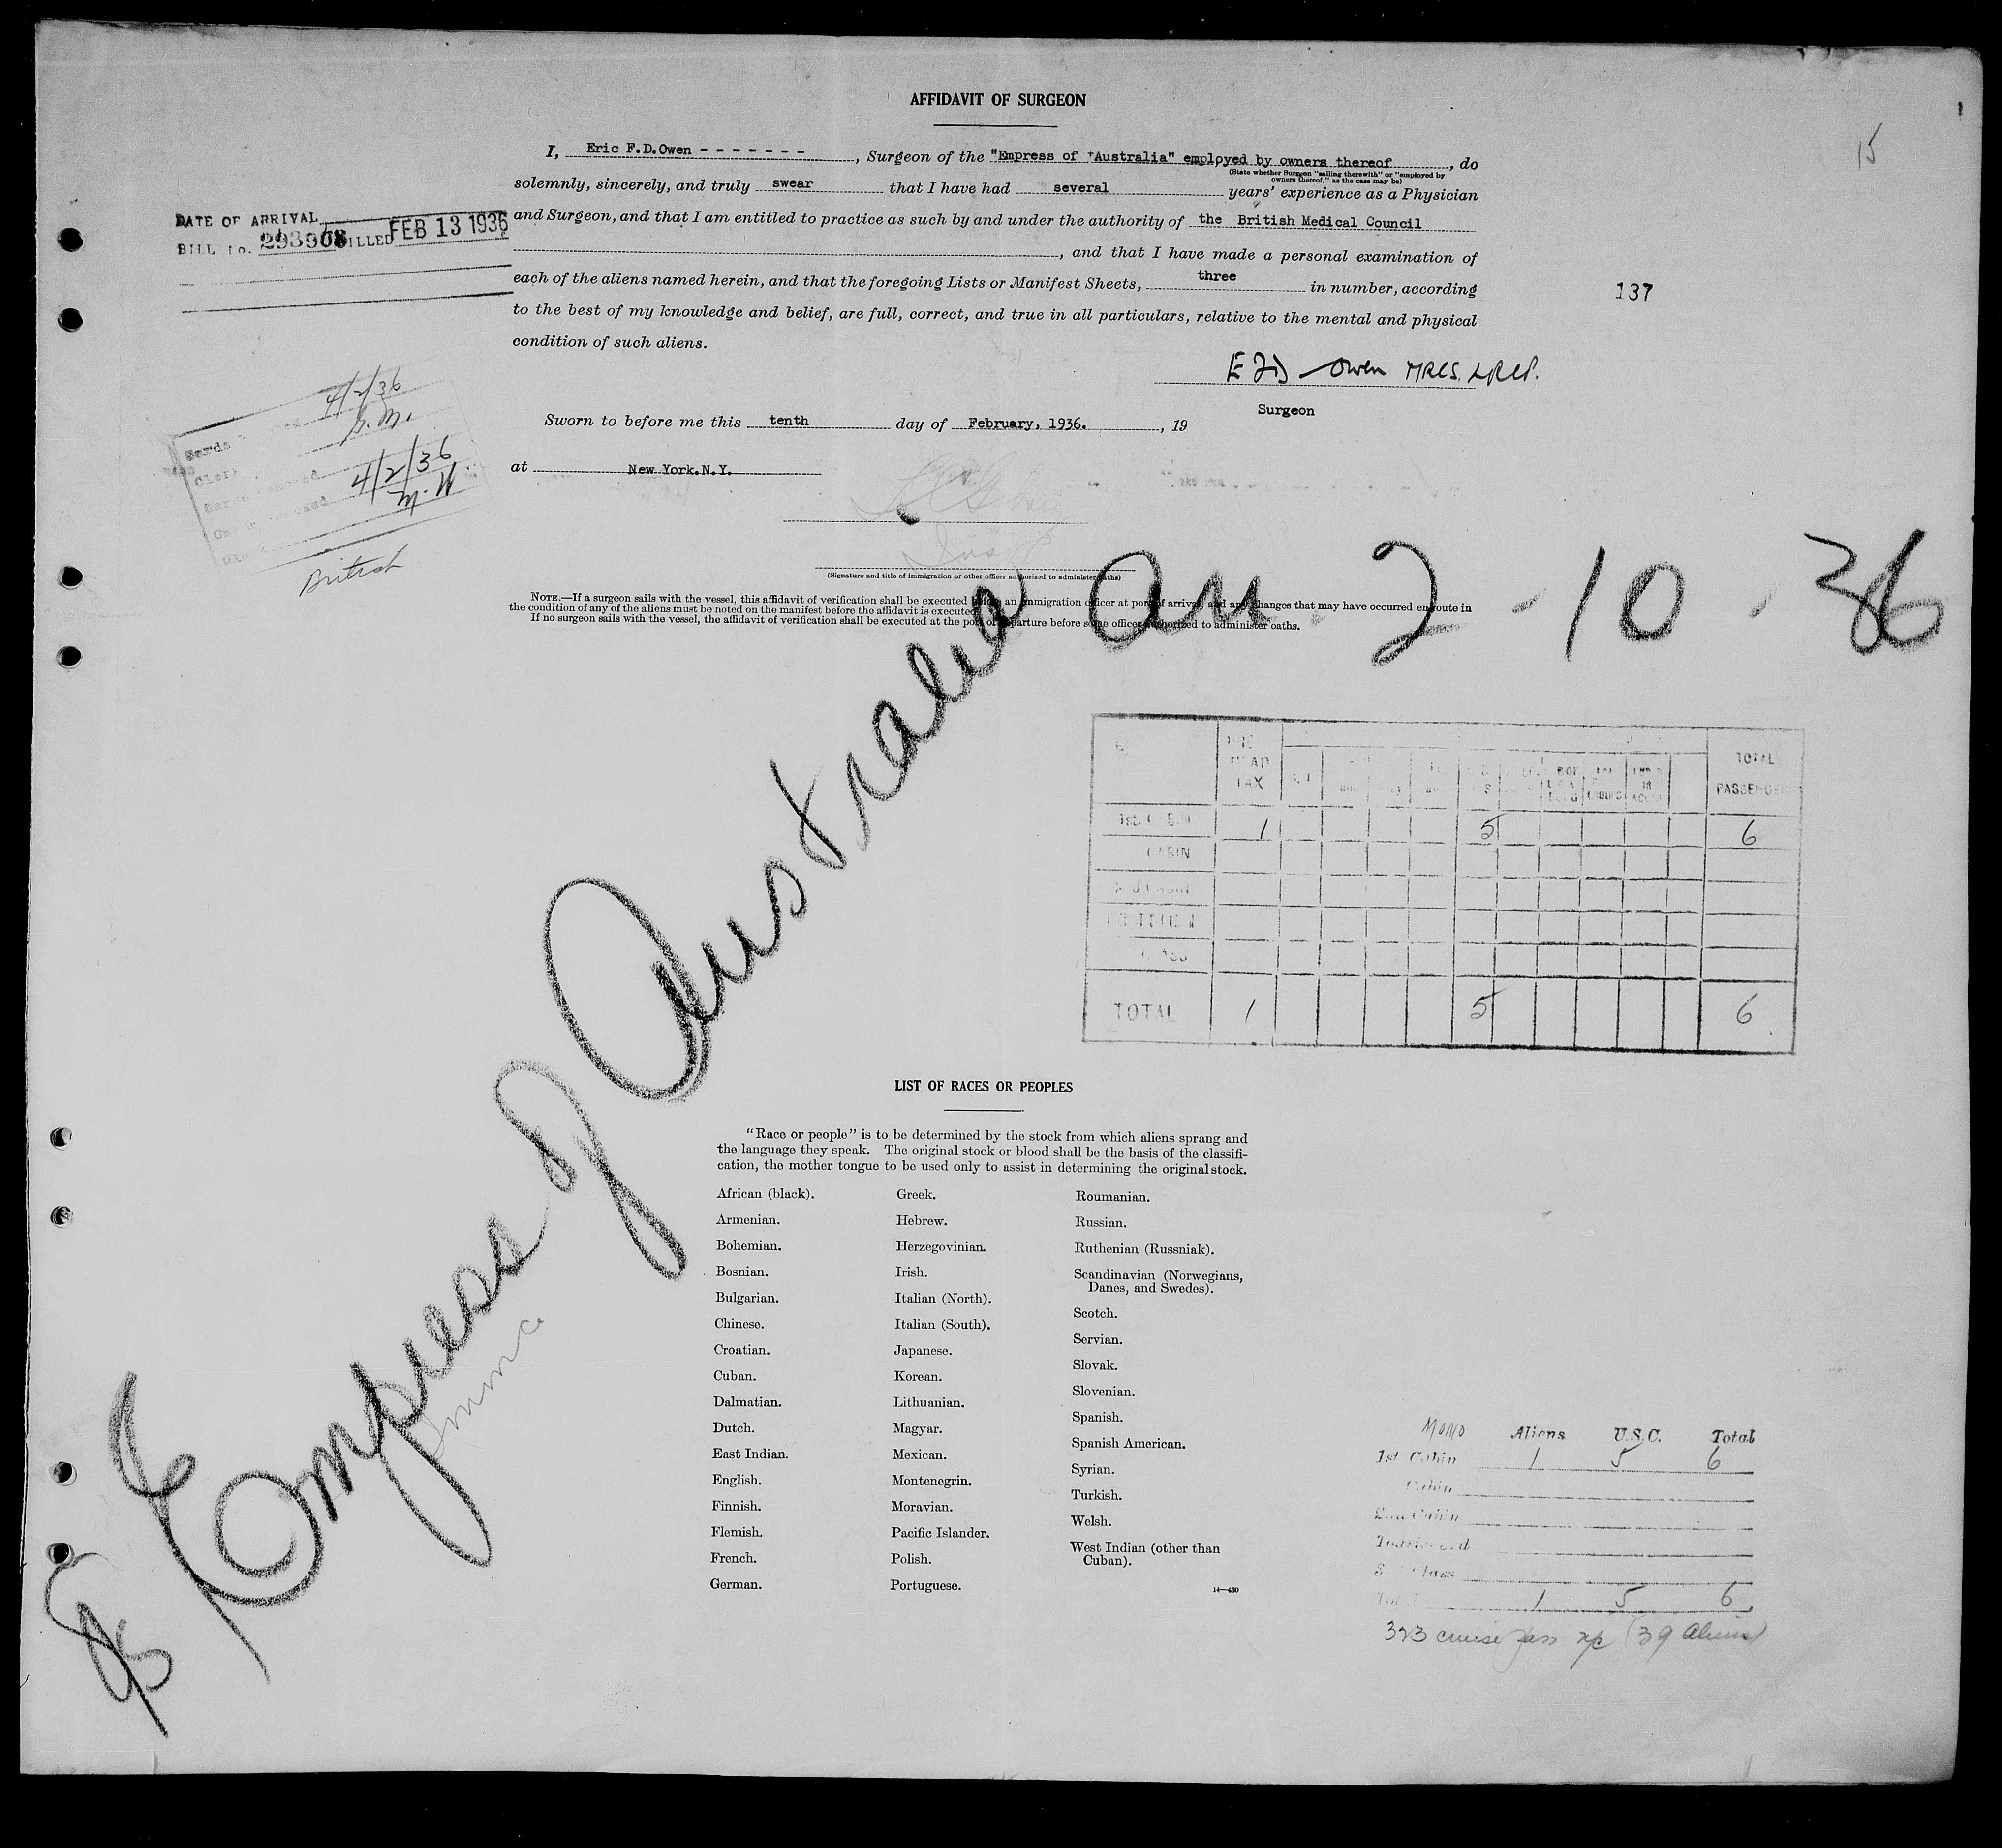 AFFIDAVIT OF SURGEON
15
I, Eric F.D.Owen - - - - - - - , Surgeon of the "Empress of Australia" employed by owners thereof, do
(State whether Surgeon "sailing therewith" or "employed by
owners thereof," as the case may be)
solemnly, sincerely, and truly swear that I have had several years' experience as a Physician
and Surgeon, and that I am entitled to practice as such by and under the authority of the British Medical Council
, and that I have made a personal examination of
each of the aliens named herein, and that the foregoing Lists or Manifest Sheets, three in number, according
to the best of my knowledge and belief, are full, correct, and true in all particulars, relative to the mental and physical
condition of such aliens.
DATE OF ARRIVAL
BILL No. BILLED FEB 13 1936
137
Owen MRCS. LRCP.
Surgeon
Sworn to before me this tenth day of February, 1936. , 19
at New York.N.Y.
4/2/36
4/2/36
British
(Signature and title of immigration or other officer authorized to administer oaths)
NOTE.—If a surgeon sails with the vessel, this affidavit of verification shall be executed before an immigration officer at port of arrival and any changes that may have occurred en route in
the condition of any of the aliens must be noted on the manifest before the affidavit is executed.
If no surgeon sails with the vessel, the affidavit of verification shall be executed at the port of departure before some officer authorized to administer oaths.
SS Empress of Australia arr 2-10-36
HEAD
TAX
TOTAL
PASSENGERS
1st CABIN 1 5 6
CABIN
TOTAL 1 5 6
LIST OF RACES OR PEOPLES
"Race or people" is to be determined by the stock from which aliens sprang and
the language they speak. The original stock or blood shall be the basis of the classifi-
cation, the mother tongue to be used only to assist in determining the original stock.
African (black).
Armenian.
Bohemian.
Bosnian.
Bulgarian.
Chinese.
Croatian.
Cuban.
Dalmatian.
Dutch.
East Indian.
English.
Finnish.
Flemish.
French.
German.
Greek.
Hebrew.
Herzegovinian.
Irish.
Italian (North).
Italian (South).
Japanese.
Korean.
Lithuanian.
Magyar.
Mexican.
Montenegrin.
Moravian.
Pacific Islander.
Polish.
Portuguese.
Roumanian.
Russian.
Ruthenian (Russniak).
Scandinavian (Norwegians,
Danes, and Swedes).
Scotch.
Servian.
Slovak.
Slovenian.
Spanish.
Spanish American.
Syrian.
Turkish.
Welsh.
West Indian (other than
Cuban).
14—430
Aliens U.S.C. Total
1st Cabin 1 5 6
Cabin
2nd Cabin
Total 1 5 6
323 cruise pass (39 aliens)